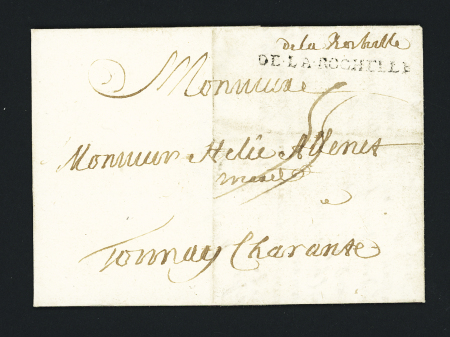 de la Rochelle
DE·LA·ROCHELLE
Monsieur
Monsieur Helie Allenet
a
Tonnay Charante